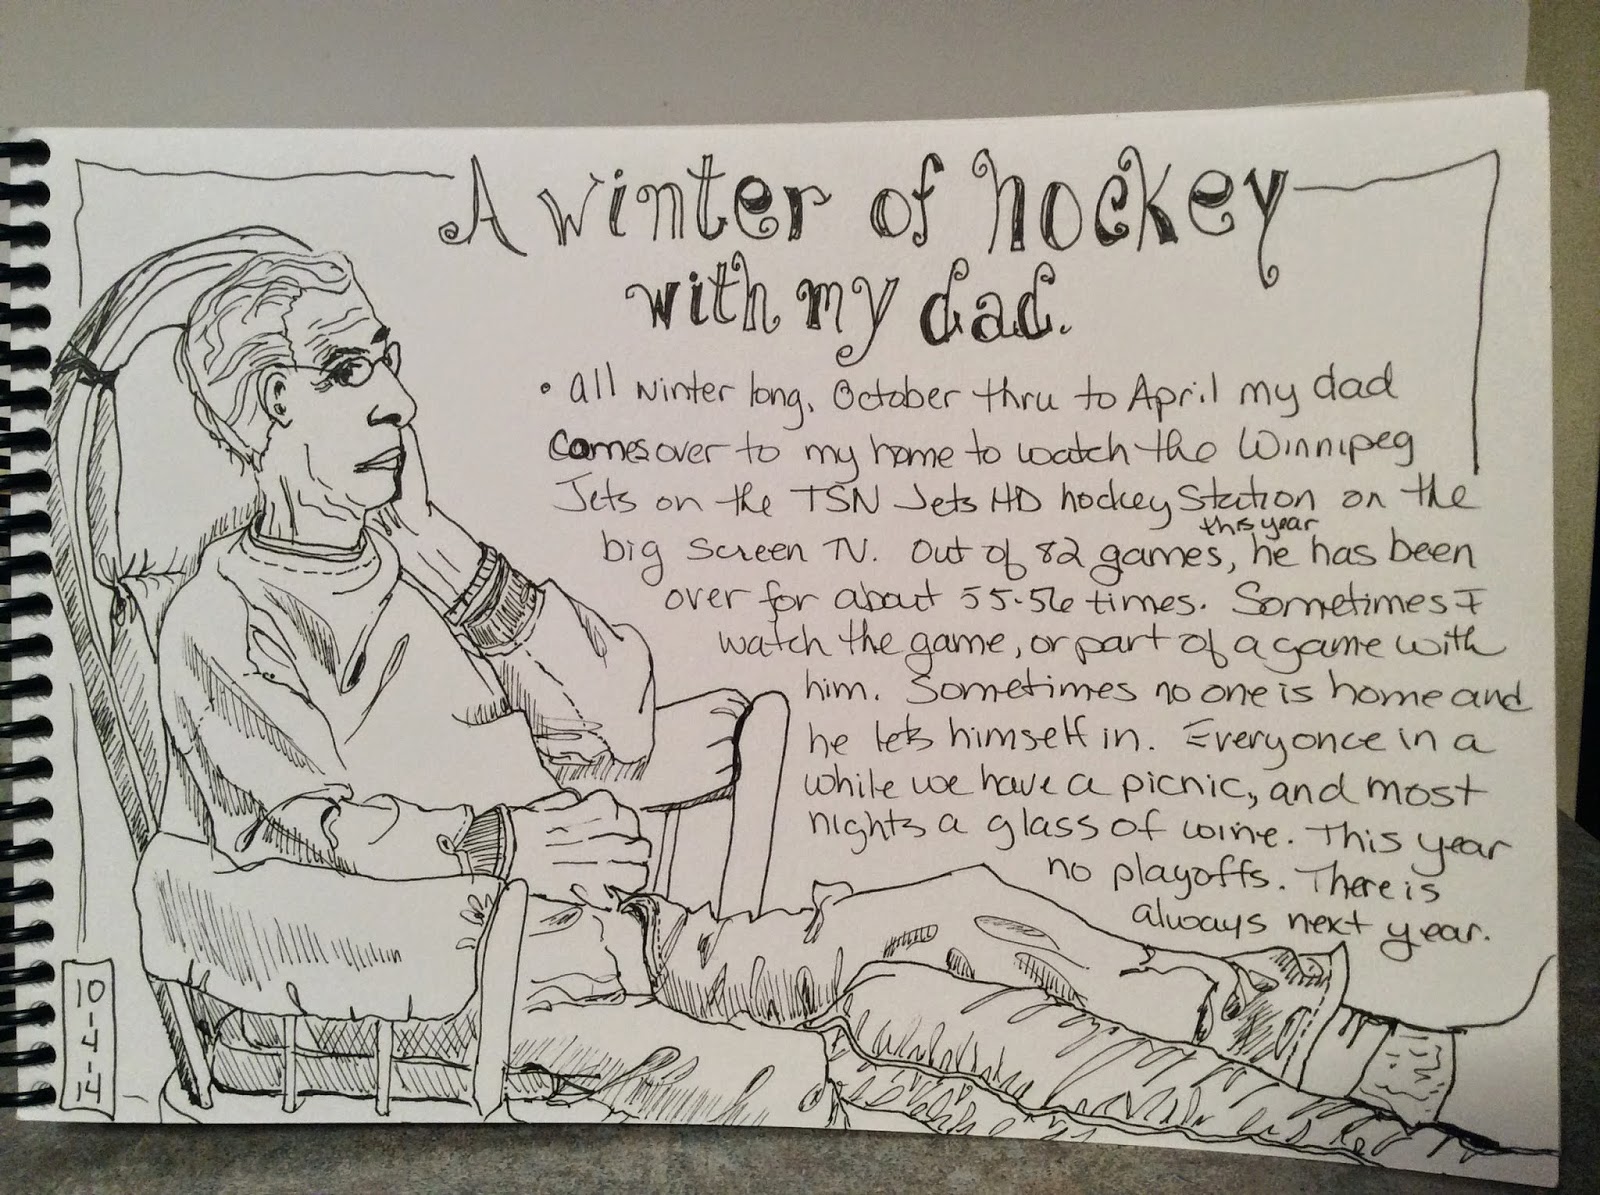 A winter of hockey
with my dad.
• all winter long, October thru to April my dad
comes over to my home to watch the Winnipeg
Jets on the TSN Jets HD hockey Station on the
this year
big screen TV. Out of 82 games, he has been
over for about 55-56 times. Sometimes I
watch the game, or part of a game with
him. Sometimes no one is home and
he lets himself in. Every once in a
while we have a picnic, and most
nights a glass of wine. This year
no playoffs. There is
always next year.